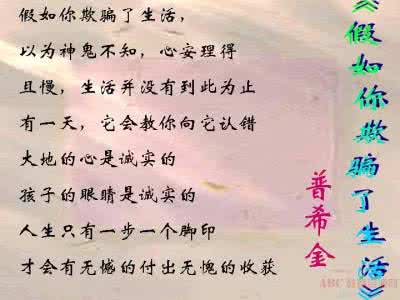 《假如你欺骗了生活》
普希金
假如你欺骗了生活，
以为神鬼不知，心安理得
且慢，生活并没有到此为止
有一天，它会教你向它认错
大地的心是诚实的
孩子的眼睛是诚实的
人生只有一步一个脚印
才会有无憾的付出无愧的收获